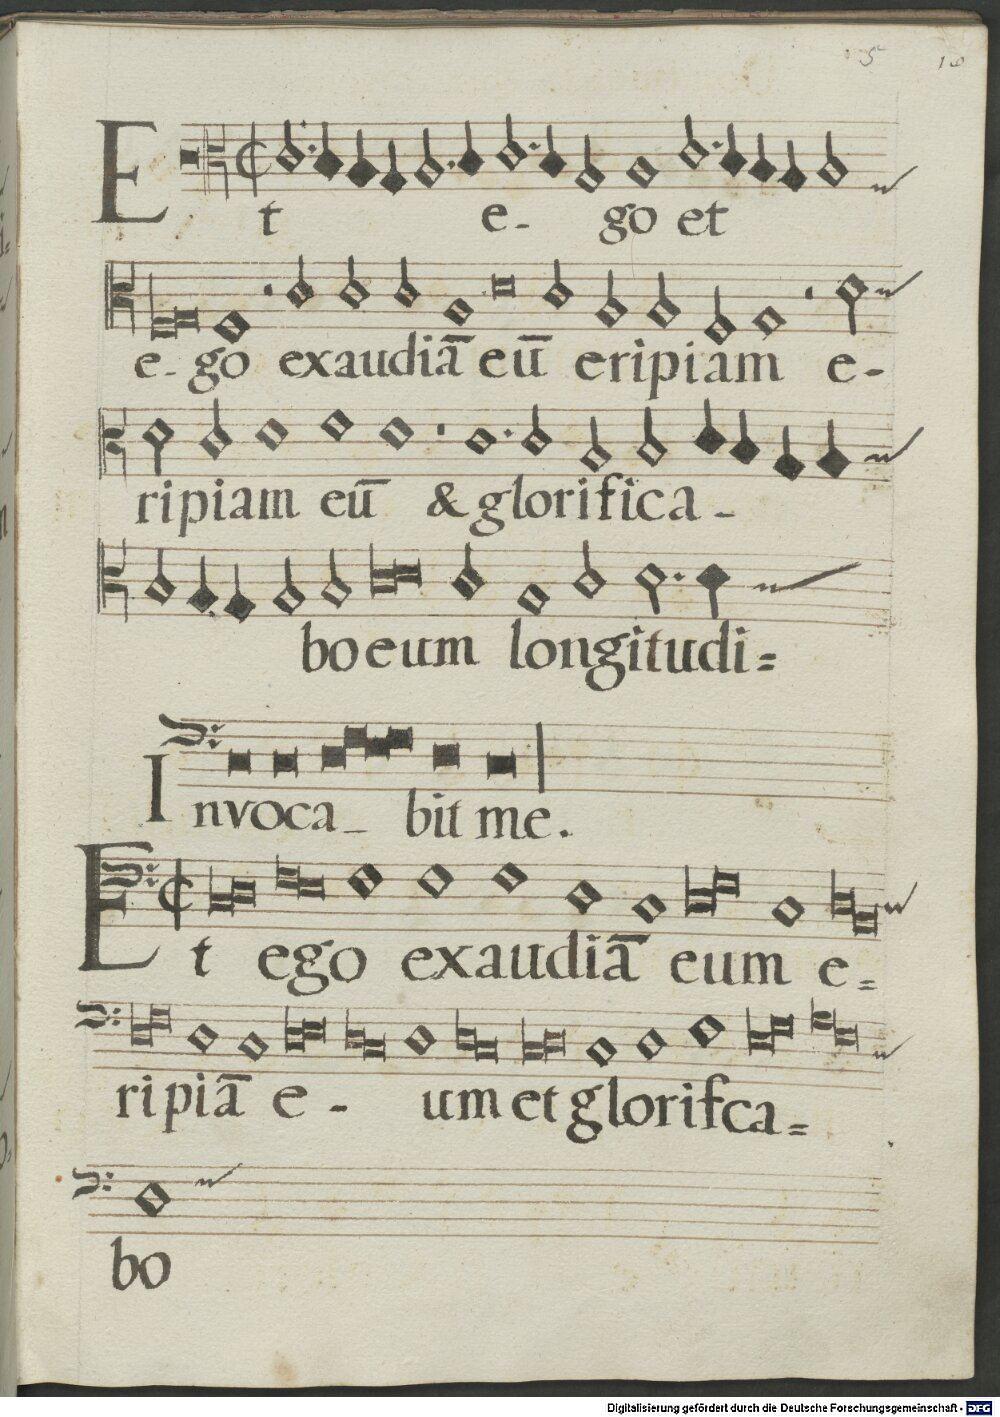 5 10
Et e- go et
e- go exaudiā eū eripiam e-
ripiam eū & glorifica -
bo eum longitudi=
Invoca - bit me.
Et ego exaudiā eum e=
ripiā e - um et glorifca=
bo
Digitalisierung gefördert durch die Deutsche Forschungsgemeinschaft - DFG